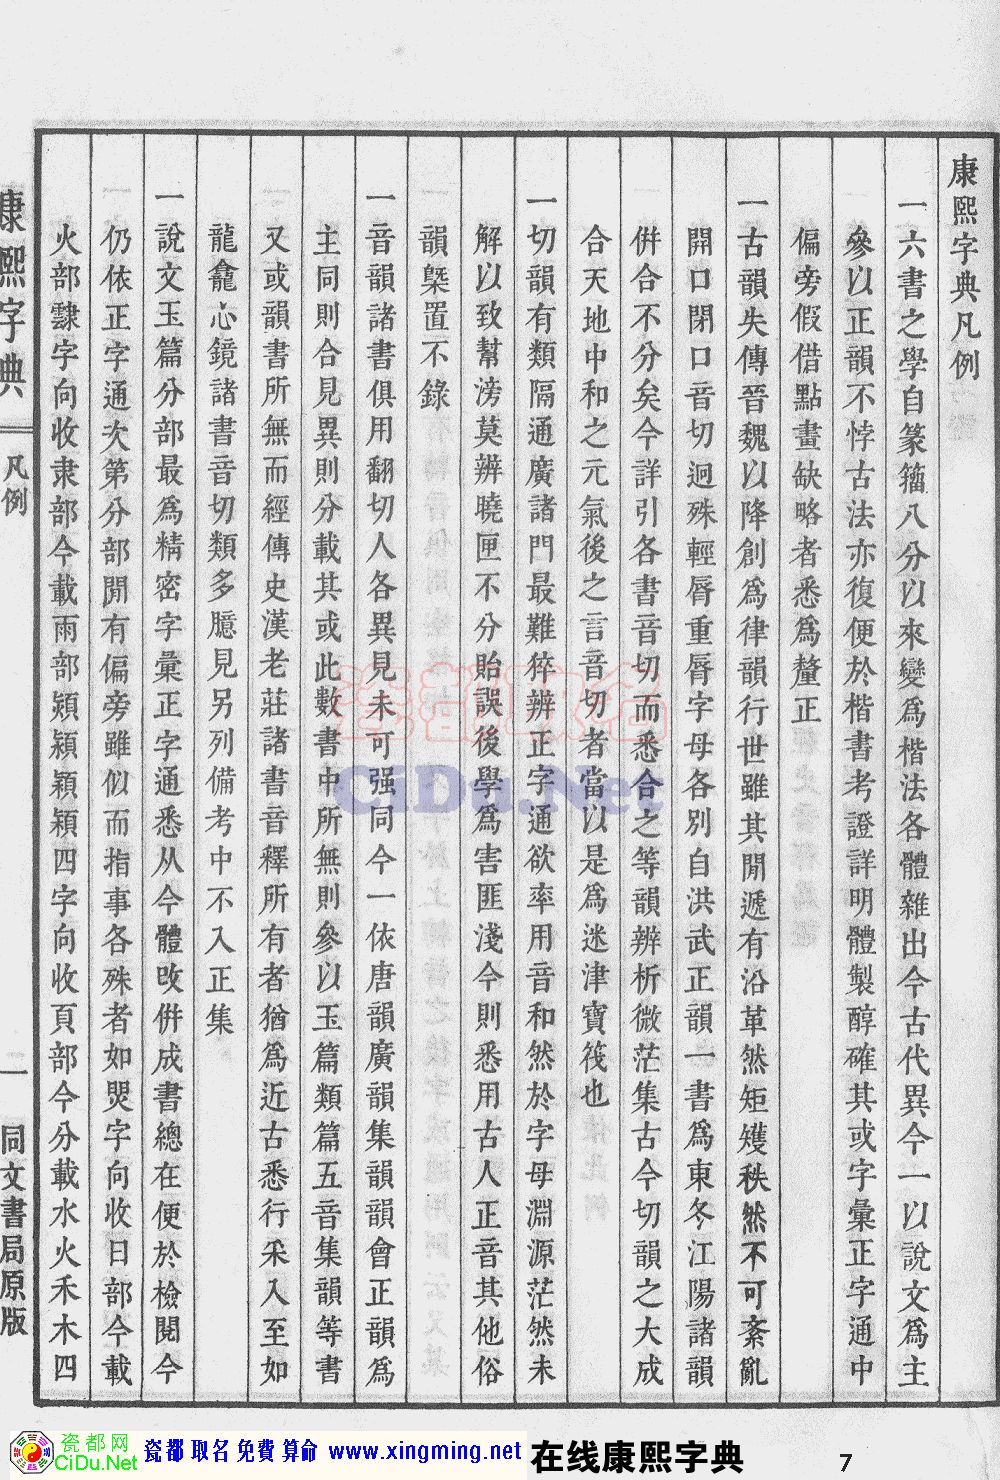 康熙字典凡例
一六書之學自篆籀八分以來變爲楷法各體雜出今古代異今一以說文爲主
參以正韻不悖古法亦復便於楷書考證詳明體製醇確其或字彙正字通中
偏旁假借點畫缺略者悉爲釐正
一古韻失傳晉魏以降創爲律韻行世雖其閒遞有沿革然矩矱秩然不可紊亂
開口閉口音切迥殊輕脣重脣字母各別自洪武正韻一書爲東冬江陽諸韻
併合不分矣今詳引各書音切而悉合之等韻辨析微茫集古今切韻之大成
合天地中和之元氣後之言音切者當以是爲迷津寶筏也
一切韻有類隔通廣諸門最難猝辨正字通欲率用音和然於字母淵源茫然未
解以致幫滂莫辨曉匣不分貽誤後學爲害匪淺今則悉用古人正音其他俗
韻槩置不錄
一音韻諸書俱用翻切人各異見未可强同今一依唐韻廣韻集韻韻會正韻爲
主同則合見異則分載其或此數書中所無則參以玉篇類篇五音集韻等書
又或韻書所無而經傳史漢老莊諸書音釋所有者猶爲近古悉行采入至如
龍龕心鏡諸書音切類多臆見另列備考中不入正集
一說文玉篇分部最爲精密字彙正字通悉从今體改併成書總在便於檢閱今
仍依正字通次第分部閒有偏旁雖似而指事各殊者如煛字向收日部今載
火部隸字向收隶部今載雨部熲潁穎潁四字向收頁部今分載水火禾木四
康熙字典
凡例
二
同文書局原版
瓷都取名
CiDu.Net
瓷都网
CiDu.Net
瓷都取名免費算命 www.xingming.net
在线康熙字典
7